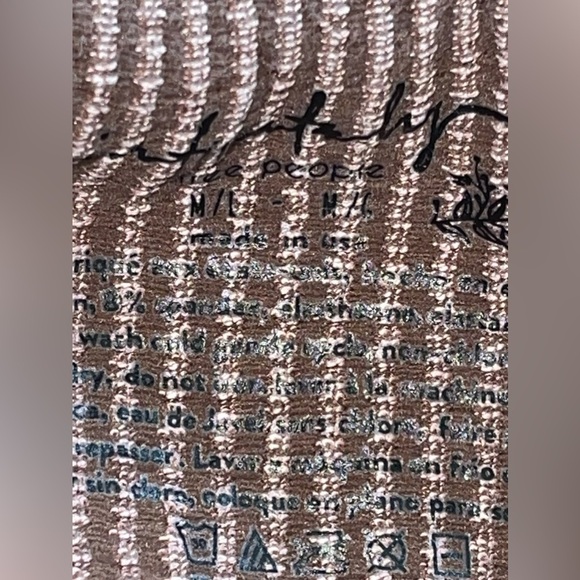 intimately
free people
M/L - M/G
made in usa
riqué aux états-unis, hecho en e
n, 8% spandex, elasthanne, elasta
wash cold gentle cycle, non-chlor
ry, do not iron. laver à la machine
ca, eau de Javel sans chlore, faire
repasser. Lavar a máquina en frio
sin cloro, coloque en plano para se